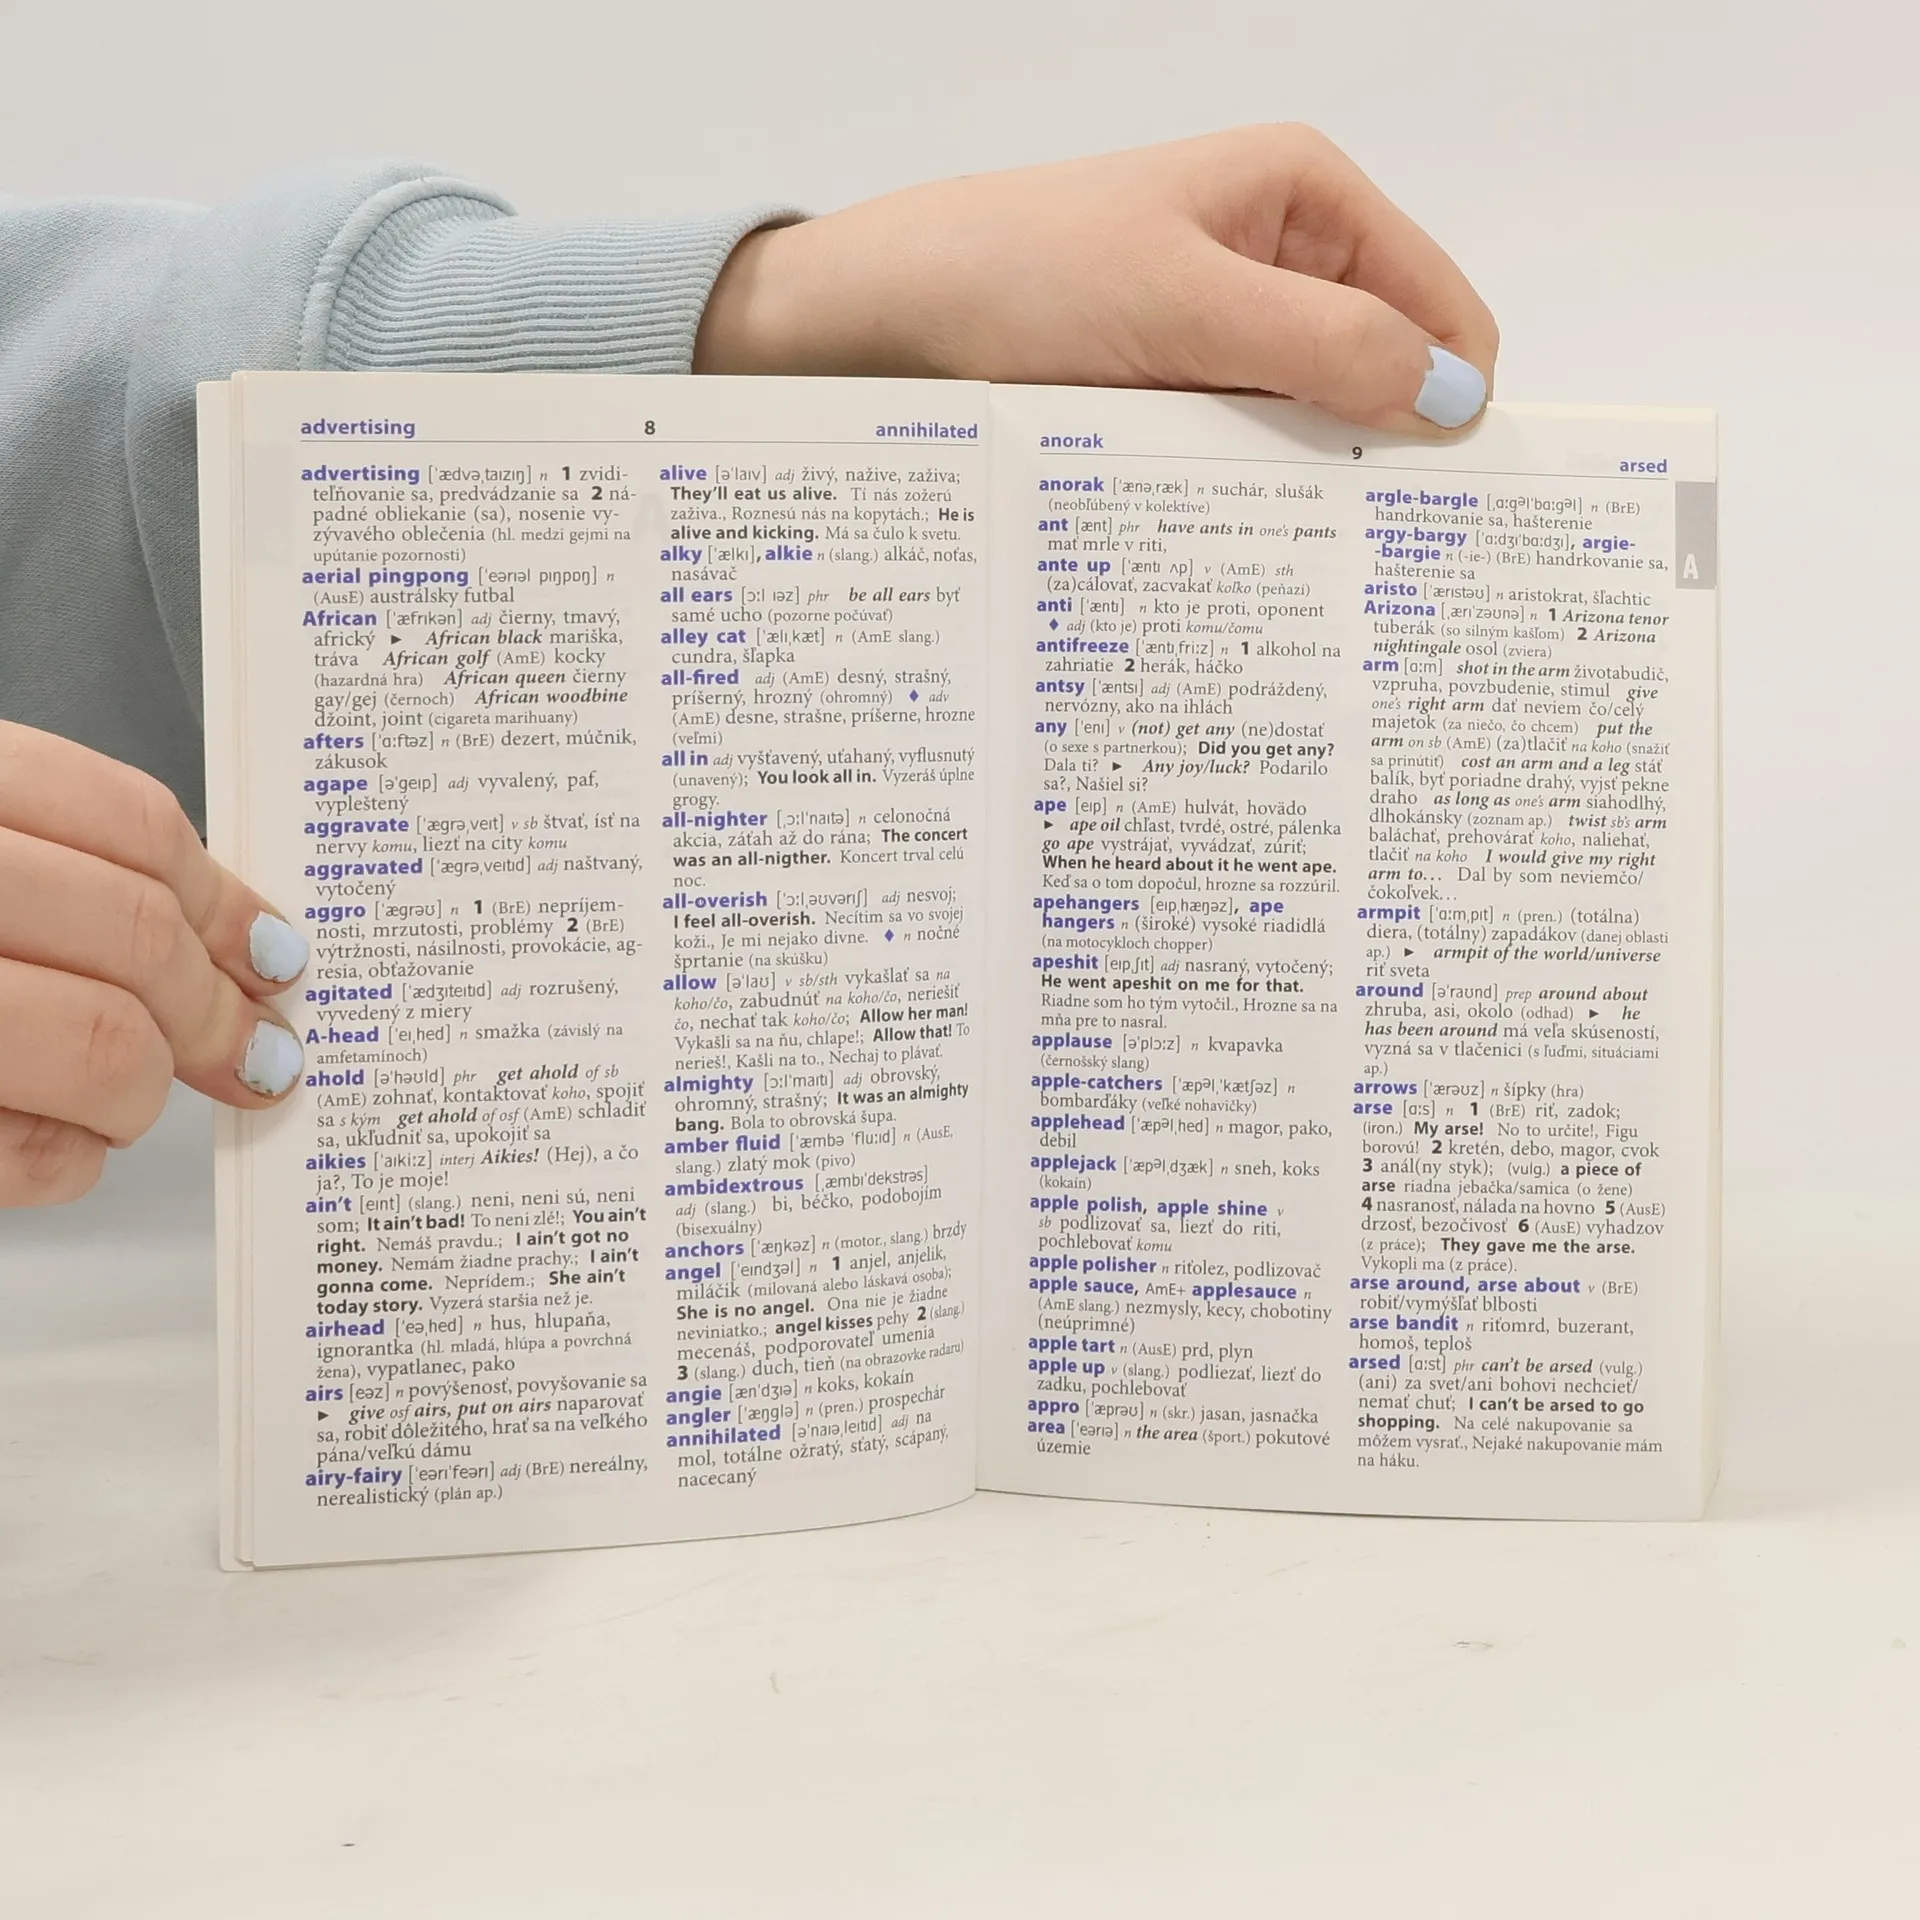 advertising 8 annihilated
advertising [ˈædvəˌtaɪzɪŋ] n 1 zvidi-
teľňovanie sa, predvádzanie sa 2 ná-
padné obliekanie (sa), nosenie vy-
zývavého oblečenia (hl. medzi gejmi na
upútanie pozornosti)
aerial pingpong [ˈeərɪəl pɪŋpɒŋ] n
(AusE) austrálsky futbal
African [ˈæfrɪkən] adj čierny, tmavý,
africký ► African black mariška,
tráva African golf (AmE) kocky
(hazardná hra) African queen čierny
gay/gej (černoch) African woodbine
džoint, joint (cigareta marihuany)
afters [ˈɑːftəz] n (BrE) dezert, múčnik,
zákusok
agape [əˈgeɪp] adj vyvalený, paf,
vypleštený
aggravate [ˈægrəˌveɪt] v sb štvať, ísť na
nervy komu, liezť na city komu
aggravated [ˈægrəˌveɪtɪd] adj naštvaný,
vytočený
aggro [ˈægrəʊ] n 1 (BrE) nepríjem-
nosti, mrzutosti, problémy 2 (BrE)
výtržnosti, násilnosti, provokácie, ag-
resia, obťažovanie
agitated [ˈædʒɪteɪtɪd] adj rozrušený,
vyvedený z miery
A-head [ˈeɪˌhed] n smažka (závislý na
amfetamínoch)
ahold [əˈhəʊld] phr get ahold of sb
(AmE) zohnať, kontaktovať koho, spojiť
sa s kým get ahold of osf (AmE) schladiť
sa, ukľudniť sa, upokojiť sa
aikies [ˈaɪkiːz] interj Aikies! (Hej), a čo
ja?, To je moje!
ain't [eɪnt] (slang.) neni, neni sú, neni
som; It ain't bad! To neni zlé!; You ain't
right. Nemáš pravdu.; I ain't got no
money. Nemám žiadne prachy.; I ain't
gonna come. Neprídem.; She ain't
today story. Vyzerá staršia než je.
airhead [ˈeəˌhed] n hus, hlupaňa,
ignorantka (hl. mladá, hlúpa a povrchná
žena), vypatlanec, pako
airs [eəz] n povýšenosť, povyšovanie sa
► give osf airs, put on airs naparovať
sa, robiť dôležitého, hrať sa na veľkého
pána/veľkú dámu
airy-fairy [ˈeərɪˈfeərɪ] adj (BrE) nereálny,
nerealistický (plán ap.)
alive [əˈlaɪv] adj živý, nažive, zaživa;
They'll eat us alive. Tí nás zožerú
zaživa., Roznesú nás na kopytách.; He is
alive and kicking. Má sa čulo k svetu.
alky [ˈælkɪ], alkie n (slang.) alkáč, noťas,
nasávač
all ears [ɔːl ɪəz] phr be all ears byť
samé ucho (pozorne počúvať)
alley cat [ˈælɪˌkæt] n (AmE slang.)
cundra, šľapka
all-fired adj (AmE) desný, strašný,
príšerný, hrozný (ohromný) ♦ adv
(AmE) desne, strašne, príšerne, hrozne
(veľmi)
all in adj vyšťavený, uťahaný, vyflusnutý
(unavený); You look all in. Vyzeráš úplne
grogy.
all-nighter [ˌɔːlˈnaɪtə] n celonočná
akcia, záťah až do rána; The concert
was an all-nigther. Koncert trval celú
noc.
all-overish [ˈɔːlˌəʊvərɪʃ] adj nesvoj;
I feel all-overish. Necítim sa vo svojej
koži., Je mi nejako divne. ♦ n nočné
šprtanie (na skúšku)
allow [əˈlaʊ] v sb/sth vykašlať sa na
koho/čo, zabudnúť na koho/čo, neriešiť
čo, nechať tak koho/čo; Allow her man!
Vykašli sa na ňu, chlape!; Allow that! To
nerieš!, Kašli na to., Nechaj to plávať.
almighty [ɔːlˈmaɪtɪ] adj obrovský,
ohromný, strašný; It was an almighty
bang. Bola to obrovská šupa.
amber fluid [ˈæmbə ˈfluːɪd] n (AusE,
slang.) zlatý mok (pivo)
ambidextrous [ˌæmbɪˈdekstrəs]
adj (slang.) bi, béčko, podobojím
(bisexuálny)
anchors [ˈæŋkəz] n (motor., slang.) brzdy
angel [ˈeɪndʒəl] n 1 anjel, anjelik,
miláčik (milovaná alebo láskavá osoba);
She is no angel. Ona nie je žiadne
neviniatko.; angel kisses pehy 2 (slang.)
mecenáš, podporovateľ umenia
3 (slang.) duch, tieň (na obrazovke radaru)
angie [ænˈdʒɪə] n koks, kokaín
angler [ˈæŋglə] n (pren.) prospechár
annihilated [əˈnaɪəˌleɪtɪd] adj na
mol, totálne ožratý, sťatý, scápaný,
nacecaný
anorak 9 arsed
anorak [ˈænəˌræk] n suchár, slušák
(neobľúbený v kolektíve)
ant [ænt] phr have ants in one's pants
mať mrle v riti,
ante up [ˈæntɪ ʌp] v (AmE) sth
(za)cálovať, zacvakať koľko (peňazí)
anti [ˈæntɪ] n kto je proti, oponent
♦ adj (kto je) proti komu/čomu
antifreeze [ˈæntɪˌfriːz] n 1 alkohol na
zahriatie 2 herák, háčko
antsy [ˈæntsɪ] adj (AmE) podráždený,
nervózny, ako na ihlách
any [ˈenɪ] v (not) get any (ne)dostať
(o sexe s partnerkou); Did you get any?
Dala ti? ► Any joy/luck? Podarilo
sa?, Našiel si?
ape [eɪp] n (AmE) hulvát, hovädo
► ape oil chľast, tvrdé, ostré, pálenka
go ape vystrájať, vyvádzať, zúriť;
When he heard about it he went ape.
Keď sa o tom dopočul, hrozne sa rozzúril.
apehangers [eɪpˌhæŋəz], ape
hangers n (široké) vysoké riadidlá
(na motocykloch chopper)
apeshit [eɪpˌʃɪt] adj nasraný, vytočený;
He went apeshit on me for that.
Riadne som ho tým vytočil., Hrozne sa na
mňa pre to nasral.
applause [əˈplɔːz] n kvapavka
(černošský slang)
apple-catchers [ˈæpəlˌkætʃəz] n
bombarďáky (veľké nohavičky)
applehead [ˈæpəlˌhed] n magor, pako,
debil
applejack [ˈæpəlˌdʒæk] n sneh, koks
(kokaín)
apple polish, apple shine v
sb podlizovať sa, liezť do riti,
pochlebovať komu
apple polisher n riťolez, podlizovač
apple sauce, AmE+ applesauce n
(AmE slang.) nezmysly, kecy, chobotiny
(neúprimné)
apple tart n (AusE) prd, plyn
apple up v (slang.) podliezať, liezť do
zadku, pochlebovať
appro [ˈæprəʊ] n (skr.) jasan, jasnačka
area [ˈeərɪə] n the area (šport.) pokutové
územie
argle-bargle [ˌɑːgəlˈbɑːgəl] n (BrE)
handrkovanie sa, hašterenie
argy-bargy [ˈɑːdʒɪˈbɑːdʒɪ], argie-
-bargie n (-ie-) (BrE) handrkovanie sa,
hašterenie sa
aristo [ˈærɪstəʊ] n aristokrat, šľachtic
Arizona [ˌærɪˈzəʊnə] n 1 Arizona tenor
tuberák (so silným kašľom) 2 Arizona
nightingale osol (zviera)
arm [ɑːm] shot in the arm životabudič,
vzpruha, povzbudenie, stimul give
one's right arm dať neviem čo/celý
majetok (za niečo, čo chcem) put the
arm on sb (AmE) (za)tlačiť na koho (snažiť
sa prinútiť) cost an arm and a leg stáť
balík, byť poriadne drahý, vyjsť pekne
draho as long as one's arm siahodlhý,
dlhokánsky (zoznam ap.) twist sb's arm
baláchať, prehovárať koho, naliehať,
tlačiť na koho I would give my right
arm to... Dal by som neviemčo/
čokoľvek...
armpit [ˈɑːmˌpɪt] n (pren.) (totálna)
diera, (totálny) zapadákov (danej oblasti
ap.) ► armpit of the world/universe
riť sveta
around [əˈraʊnd] prep around about
zhruba, asi, okolo (odhad) ► he
has been around má veľa skúseností,
vyzná sa v tlačenici (s ľuďmi, situáciami
ap.)
arrows [ˈærəʊz] n šípky (hra)
arse [ɑːs] n 1 (BrE) riť, zadok;
(iron.) My arse! No to určite!, Figu
borovú! 2 kretén, debo, magor, cvok
3 anál(ny styk); (vulg.) a piece of
arse riadna jebačka/samica (o žene)
4 nasranosť, nálada na hovno 5 (AusE)
drzosť, bezočivosť 6 (AusE) vyhadzov
(z práce); They gave me the arse.
Vykopli ma (z práce).
arse around, arse about v (BrE)
robiť/vymýšľať blbosti
arse bandit n riťomrd, buzerant,
homoš, teploš
arsed [ɑːst] phr can't be arsed (vulg.)
(ani) za svet/ani bohovi nechcieť/
nemať chuť; I can't be arsed to go
shopping. Na celé nakupovanie sa
môžem vysrať., Nejaké nakupovanie mám
na háku.
A